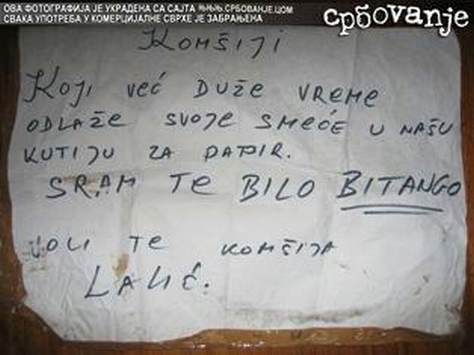 ОВА ФОТОГРАФИЈА ЈЕ УКРАДЕНА СА САЈТА www.СРБОВАЊЕ.ЦОМ
СВАКА УПОТРЕБА У КОМЕРЦИЈАЛНЕ СВРХЕ ЈЕ ЗАБРАЊЕНА
србоvanje
KOMŠIJI
KOJI VEĆ DUŽE VREME
ODLAŽE SVOJE SMEĆE U NAŠU
KUTIJU ZA PAPIR.
SRAM TE BILO BITANGO
VOLI TE KOMŠIJA
LALIĆ.